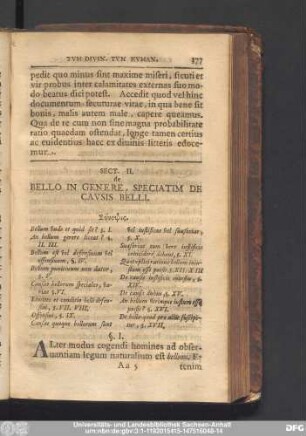 TVM DIVIN. TVM HVMAN. 377
pedit quo minus sint maxime miseri, sicuti et
vir probus inter calamitates externas suo mo-
do beatus dici potest. Accedit quod vel hinc
documentum secuturae vitae, in qua bene sit
bonis, malis autem male, capere queamus.
Qua de re cum non sine magna probabilitate
ratio quaedam ostendat, longe tamen certius
ac euidentius haec ex diuinis litteris educe-
mur.
SECT. II.
de
BELLO IN GENERE, SPECIATIM DE
CAVSIS BELLI.
Σύνοψις.
Bellum vnde et quid sit? §. I.
An bellum gerere liceat? §.
II. III.
Bellum est vel defensiuum vel
offensiuum, §. IV.
Bellum punitiuum non datur,
§. V.
Caussae bellorum speciales, va-
riae §. VI.
§. VII. VIII.
Offensiui, §. IX.
Caussae quoque bellorum sunt
vel iustificae vel suasoriae,
§. X.
Suasoriae non sine iustificis
§. XI.
§. XII. XIII
De caussis iustificis
XIV.
De caussis §. XV.
An bellum vtrinque iustum esse
possit? §. XVI.
De bello quod pro aliis suscipi-
tur, §. XVII.
§. I.
ALter modus cogendi homines ad obser-
uantiam legum naturalium est bellum. E-
Aa 5 tenim
Universitäts- und Landesbibliothek Sachsen-Anhalt
urn:nbn:de:gbv:3:1-1192015415-147516049-14
DFG